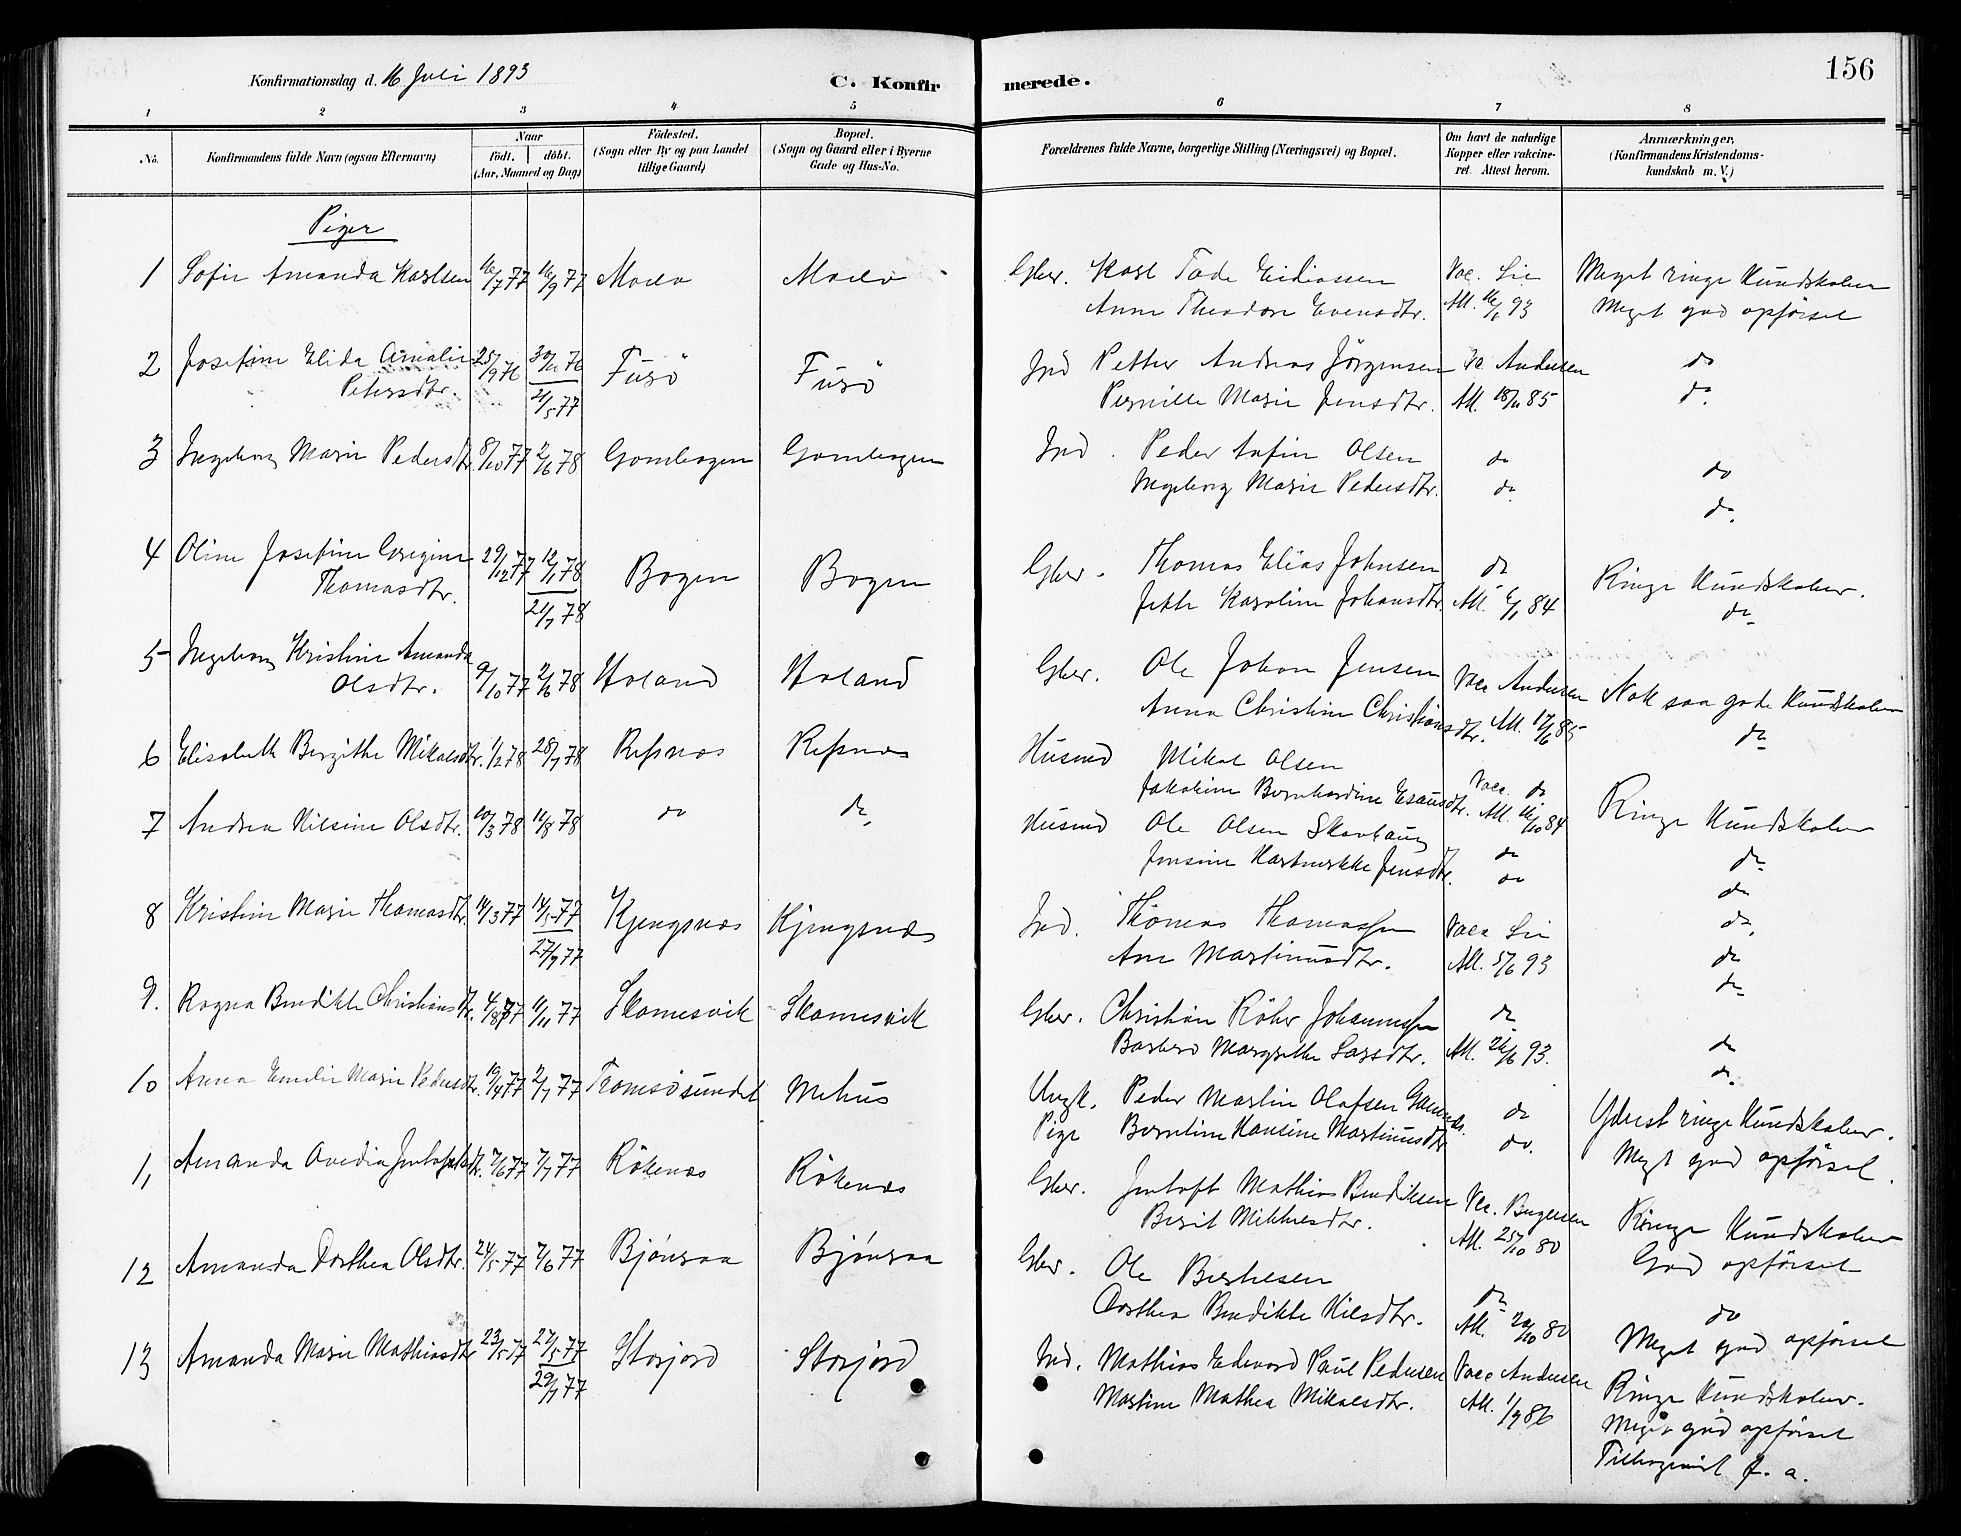 156
Konfirmationsdag d. 16 Juli 1893
C. Konfirmerede.
1 2 3 4 5 6 7 8
No. Konfirmandens fulde Navn (ogsaa Efternavn) Naar født. døbt. (Aar, Maaned og Dag) Fødested. (Sogn eller By og paa Landet tillige Gaard) Bopæl. (Sogn og Gaard eller i Byerne Gade og Hus-No. Forældrenes fulde Navne, borgerlige Stilling (Næringsvei) og Bopæl. Om havt de naturlige Kopper eller vakcineret. Attest herom. Anmærkninger. (Konfirmandens Kristendomskundskab m. V.)
Piger
1 Sofie Amanda Karlsen 16/7 77 16/9 77 Gber. Karl Tode Meget ringe Kundskaber
Anne Theodore Evensdtr. Att. 93 Meget god opførsel
2 Josefine Elida Amalie 25/9 76 76 Furö Furö Ind Petter Andreas Jörgensen Andersen do
Petersdtr. 77 Pernille Marie Jensdtr. Att. 85 do.
3 Ingeborg Marie Pedersdtr. 8/10 77 2/6 78 Ind. Peder Olsen do do
Ingeborg Marie Pedersdtr. do do.
4 Oline Josefine Thomasdtr. 29/12 77 12/1 78 Bogen Bogen Gber. Thomas Elias Johnsen do Ringe Kundskaber.
21/7 78 Karoline Johansdtr. Att. 84 do
5 Ingeborg Kristine Amanda Olsdtr. 9/10 77 2/6 78 Gber. Ole Johan Jensen Vac Andersen Nok saa gode Kundskaber
Anna Christine Christiansdtr. Att. 85 do
6 Elisabeth Birgithe Mikalsdtr. 1/2 78 28/7 78 Refsnæs Refsnæs Husmd Mikal Olsen Vacc. do Ringe Kundskaber
Jakobine Bernhardine Esausdtr. Att. 84 do
7 Andrea Nilsine Olsdtr. 20/3 78 11/8 78 do do. Husmd Ole Olsen Skavhaug do do
Jensine Jensdtr. do do.
8 Kristine Marie Thomasdtr. 14/3 77 14/5 77 Kjengsnæs Kjengsnæs Ind. Thomas Thomassen Vacc Lie do
27/9 77 Ane Martinusdtr. Att. 5/6 93 do
9. Ragna Bendikte Christiansdtr. 4/8 77 11/11 77 Skomesvik Skomesvik Gber. Christian Röhr Johannessen do do
Barbero Margrethe Larsdtr. Att. 26/6 93. do.
10 Anna Emelie Marie Pedersdtr. 19/4 77 2/7 77 Tromsösundet Mehus Ungk. Peder Martin Olafsen do Yderst ringe Kundskaber.
Pige Berntine Hansine Martinusdtr do. Meget god opførsel.
11 Amanda Ovedia Jentoftsdtr. 7/6 77 7/7 77 Rökenæs Rökenæs Gber. Jentoft Mathias Bendiksen Vac. Ringe Kundskaber
Berit Mikkelsdtr. Att. 25/10 80 God opførsel
12 Amanda Dorthea Olsdtr. 24/5 77 7/6 77 Bjönraa Bjönraa Gber. Ole do do
Dorthea Bendikte Nilsdtr. Att. 20/10 80 Meget god opførsel
13 Amanda Marie Mathiasdtr 23/5 77 27/5 77 Storjord Storjord Ind. Mathias Edevard Paul Pedersen Vacc Andersen Ringe Kundskaber.
29/7 77 Martine Mathea Mikalsdtr. Att. 1/9 86 Meget god opførsel
f. a.